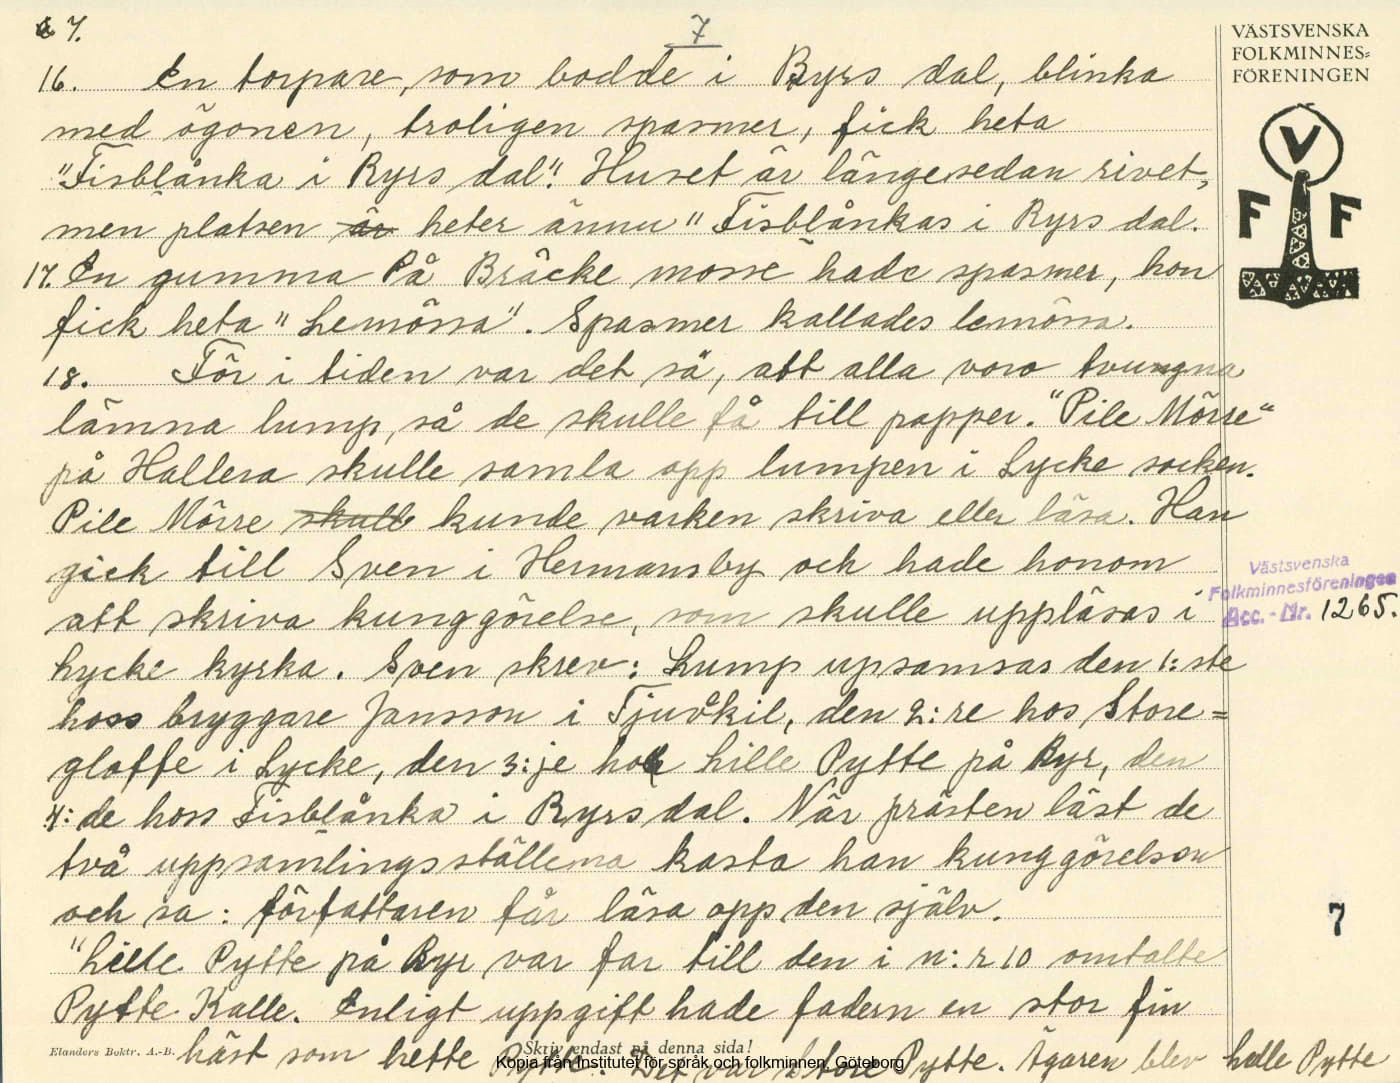 7.
7
VÄSTSVENSKA
FOLKMINNES=
FÖRENINGEN
V
F F
16. En torpare, som bodde i Ryrs dal, blinka
med ögonen, troligen spasmer, fick heta
"Fisblånka i Ryrs dal". Huset är längesedan rivet,
men platsen är heter ännu "Fisblånkas i Ryrs dal.
17. En gumma På Bräcke mosse hade spasmer, hon
fick heta "Lemössa". Spasmer kallades lemössa.
18. För i tiden var det så, att alla voro tvungna
lämna lump, så de skulle få till papper. "Pile Mörre"
på Hallera skulle samla opp lumpen i Lycke socken.
Pile Mörre skulle kunde varken skriva eller läsa. Han
gick till Sven i Hermansby och hade honom
att skriva kunggörelse, som skulle uppläsas i
Lycke kyrka. Sven skrev: Lump upsamsas den 1:ste
hoss bryggare Jansson i Tjuvkil, den 2:re hos Store=
gloffe i Lycke, den 3:je hos Lille Pytte på Ryr, den
4:de hoss Fisblånka i Ryrs dal. När prästen läst de
två uppsamlingsställena kasta han kunggörelsen
och sa: författaren får läsa opp den själv.
"Lille Pytte på Ryr var far till den i n:r 10 omtalte
Pytte Kalle. Enligt uppgift hade fadern en stor fin
häst som hette Pytte. Det var Store Pytte. Ägaren blev Lille Pytte
Västsvenska
Folkminnesföreningen
Acc.-Nr. 1265.
7
Elanders Boktr. A.-B.
Skriv endast på denna sida!
Kopia från Institutet för språk och folkminnen, Göteborg